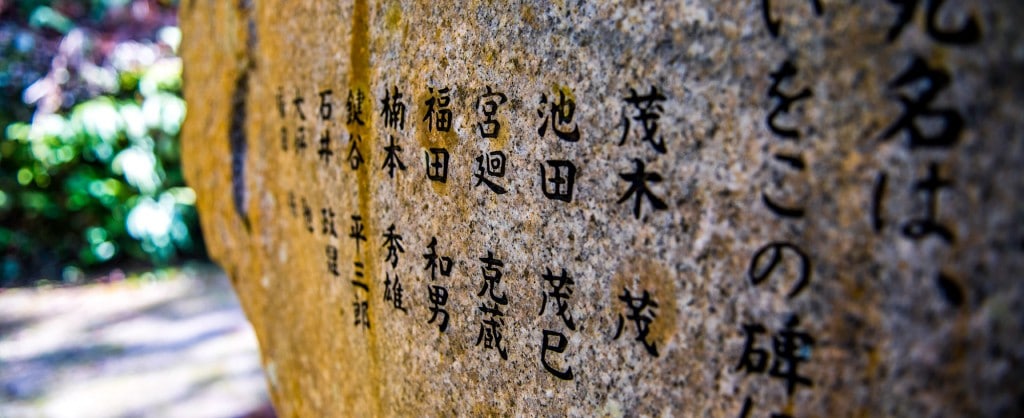 九名は、
いをこの碑
茂木 茂
池田 茂巳
宮廻 克蔵
福田 和男
楠本 秀雄
鍵谷 平三郎
石井